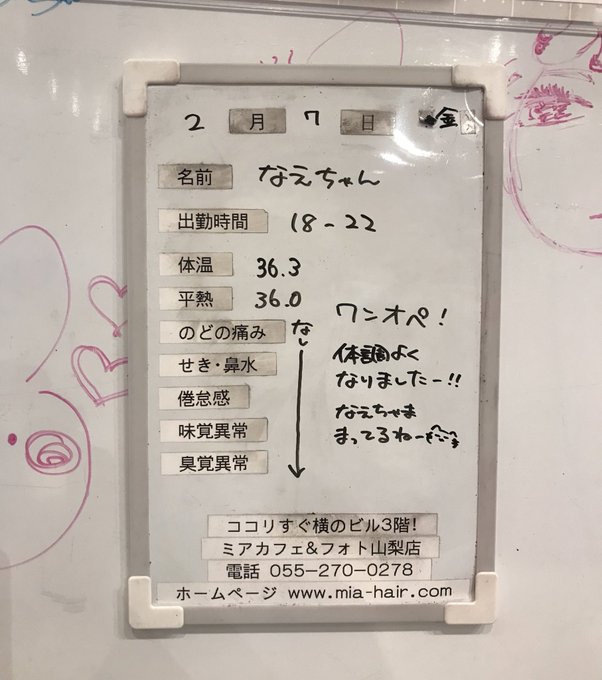 2 月 7 日 金
名前 なえちゃん
出勤時間 18-22
体温 36.3
平熱 36.0
のどの痛み なし
せき・鼻水
倦怠感
味覚異常
臭覚異常
ワンオペ!
体調よく
なりましたー!!
なえちゃま
まってるねー
ココリすぐ横のビル3階!
ミアカフェ&フォト山梨店
電話 055-270-0278
ホームページ www.mia-hair.com